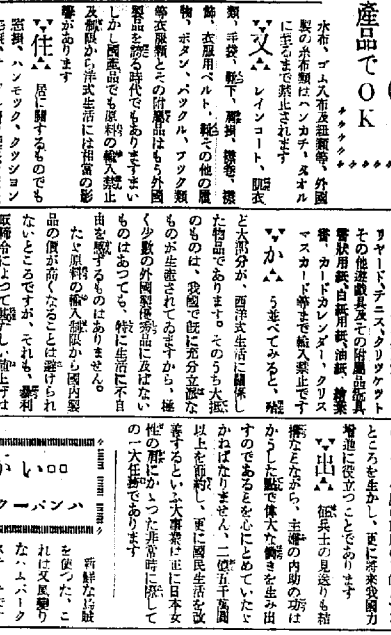 産品でＯＫ
水布、ゴム入布及紐類等、外國
製の糸布類はハンカチ、タオル
に至るまで禁止されます
又 レインコート、肌衣
類、手袋、靴下、肩掛、襟巻、襟
飾、衣服用ベルト、靴その他の履
物、ボタン、バックル、フック類
等衣服類とその附屬品はもう外國
製品を誇る時代でもありますまい
しかし國産品でも原料の輸入禁止
及制限から洋式生活には相當の影
響があります
住 居に關するものでも
窓掛、ハンモック、クッション
リヤード、テニス、クリケット
その他遊戯具及その附屬品玩具
書狀用紙、白紙用紙、油紙、繪葉
書、カードカレンダー、クリス
マスカード等まで輸入禁止です
か う並べてみると、
ど大部分が、西洋式生活に關係し
た物品であります。そのうち大抵
のものは、我國で既に充分立派な
ものが生産されてゐますから、極
く少數の外國製優秀品に及ばない
ものはあつても、特に生活に不自
由を感ずるものはありません。
たゞ原料の輸入制限から國内製
品の價が高くなることは避けられ
ないところですが、それも、暴利
取締令によつて甚だしい値上げは
ところを生かし、更に將來我國力
増進に役立つことであります
出 征兵士の見送りも結
構なことながら、主婦の内助の功は
かうした點で偉大な働きを生み出
すのであるとを心にとめていたゞ
かねばなりません、二億五千萬圓
以上を節約し、更に國民生活を改
善するといふ大事業は正に日本女
性の肩にかゝつた非常時に際して
の一大任務であります
かい
クーパンハ
新鮮な
を使つた、こ
れは又風變り
なハムパーク